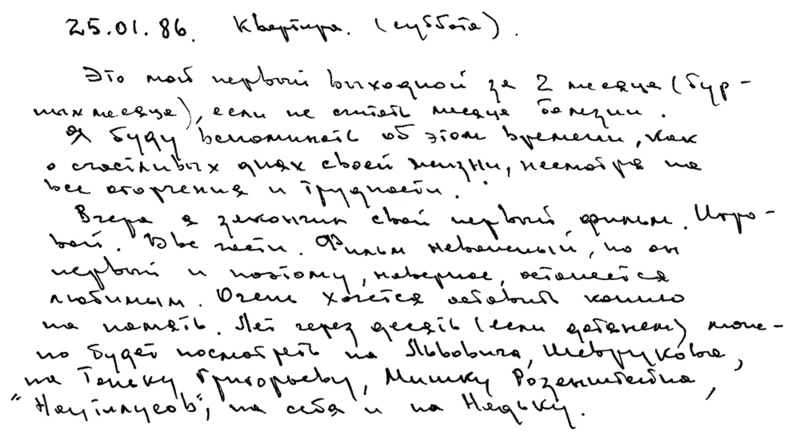 25.01.86. Квартира. (суббота).
Это мой первый выходной за 2 месяца (бур-
ных месяца), если не считать месяца болезни.
Я буду вспоминать об этом времени, как
о счастливых днях своей жизни, несмотря на
все огорчения и трудности.
Вчера я закончил свой первый фильм. Игро-
вой. Две части. Фильм неважный, но он
первый и поэтому, наверное, останется
любимым. Очень хочется оставить копию
на память. Лет через десять (если достанем) мож-
но будет посмотреть на Львовича, Шевдрукова,
на Таньку Григорьеву, Мишку Розенштейна,
"Наутилусов", на себя и на Недьку.